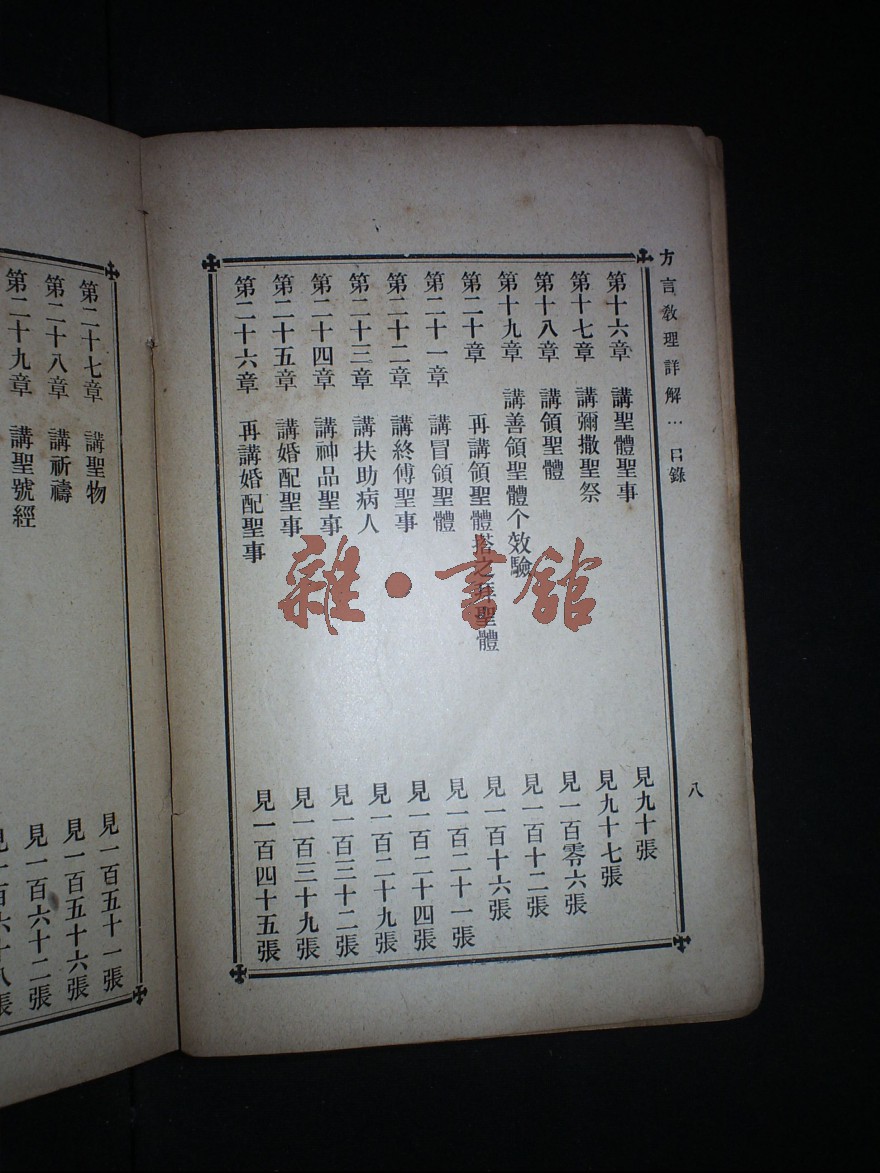 方言教理詳解… 目錄
八
第十六章 講聖體聖事 見九十張
第十七章 講彌撒聖祭 見九十七張
第十八章 講領聖體 見一百零六張
第十九章 講善領聖體个效驗 見一百十二張
第二十章 再講領聖體搭之拜聖體 見一百十六張
第二十一章 講冒領聖體 見一百二十一張
第二十二章 講終傅聖事 見一百二十四張
第二十三章 講扶助病人 見一百二十九張
第二十四章 講神品聖事 見一百三十二張
第二十五章 講婚配聖事 見一百三十九張
第二十六章 再講婚配聖事 見一百四十五張
第二十七章 講聖物 見一百五十一張
第二十八章 講祈禱 見一百五十六張
第二十九章 講聖號經 見一百六十二張
見一百六十八張
雜·書館